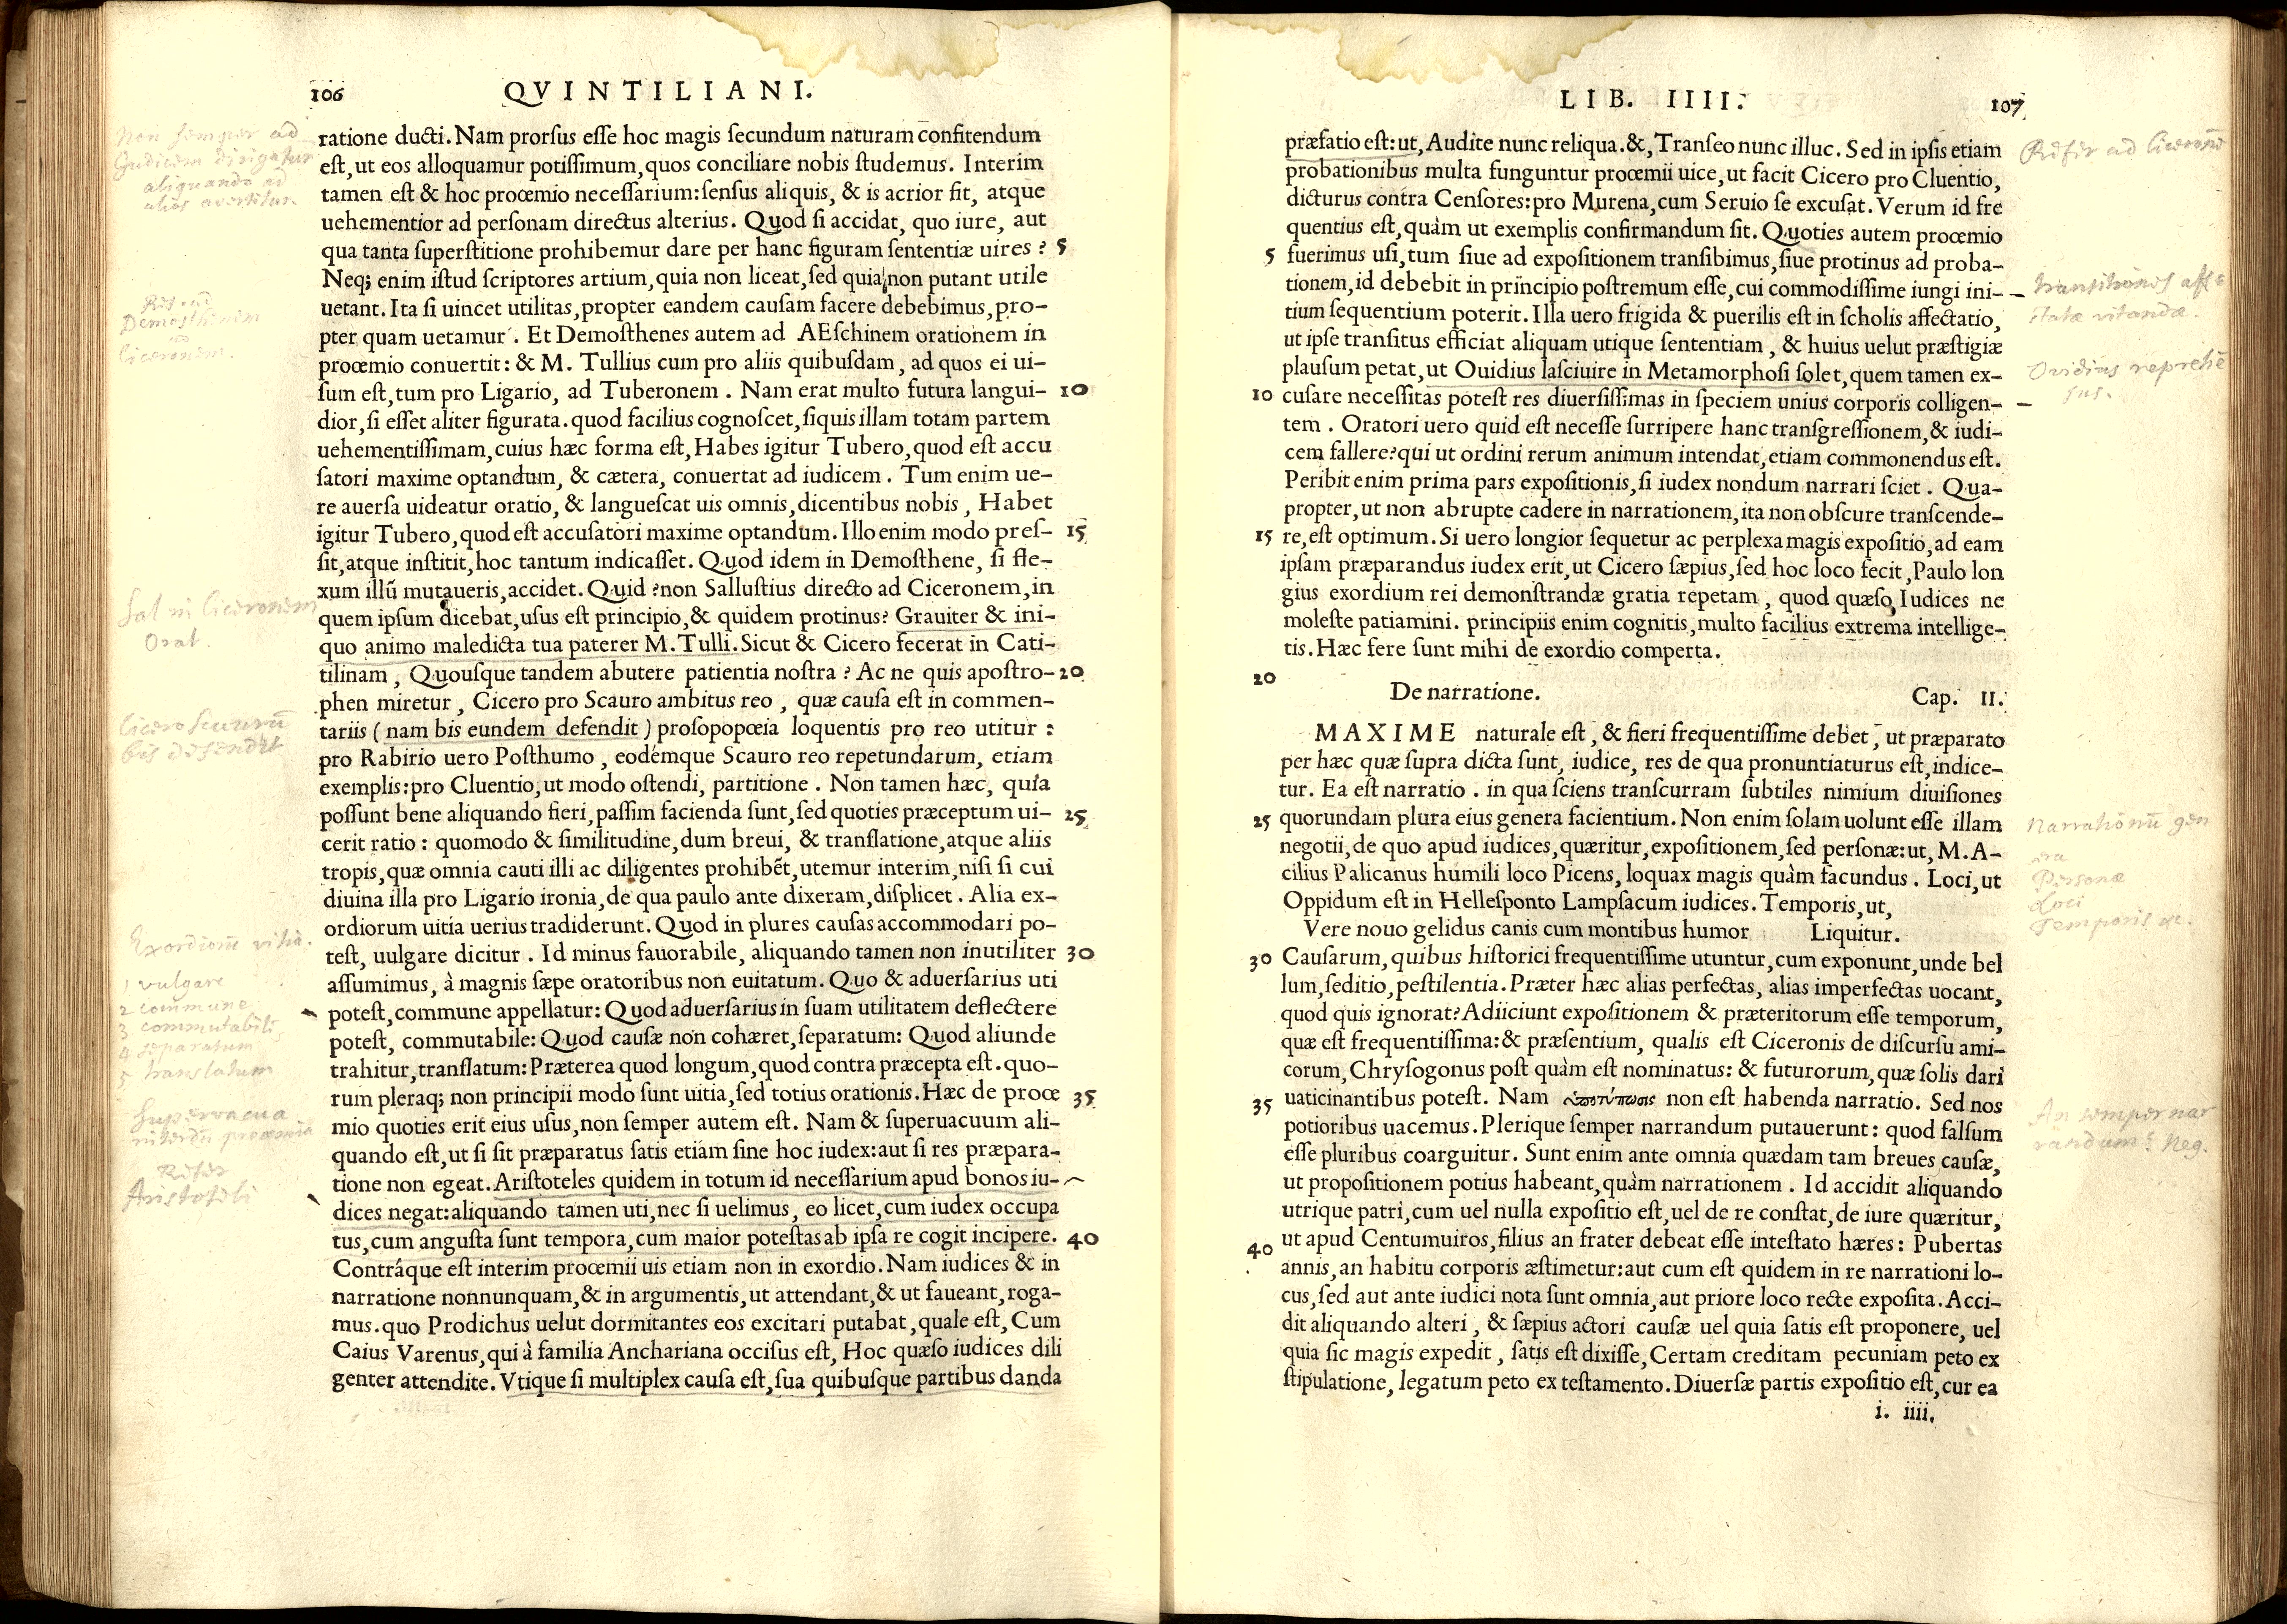 106 QVINTILIANI.
Non semper ad
Iudicem dirigatur
aliquando ad
alios avertitur.
ratione ducti. Nam prorſus eſſe hoc magis ſecundum naturam confitendum
eſt, ut eos alloquamur potiſſimum, quos conciliare nobis ſtudemus. Interim
tamen eſt & hoc prooemio neceſſarium: ſenſus aliquis, & is acrior fit, atque
uehementior ad perſonam directus alterius. Quod ſi accidat, quo iure, aut
qua tanta ſuperſtitione prohibemur dare per hanc figuram ſententiæ uires? 5
Neq; enim iſtud ſcriptores artium, quia non liceat, ſed quia non putant utile
Demosthenem
Ciceronem.
uetant. Ita ſi uincet utilitas, propter eandem cauſam facere debebimus, pro-
pter quam uetamur. Et Demoſthenes autem ad AEſchinem orationem in
prooemio conuertit: & M. Tullius cum pro aliis quibuſdam, ad quos ei ui-
ſum eſt, tum pro Ligario, ad Tuberonem. Nam erat multo futura langui- 10
dior, ſi eſſet aliter figurata. quod facilius cognoſcet, ſiquis illam totam partem
uehementiſſimam, cuius hæc forma eſt, Habes igitur Tubero, quod eſt accu
ſatori maxime optandum, & cætera, conuertat ad iudicem. Tum enim ue-
re auerſa uideatur oratio, & langueſcat uis omnis, dicentibus nobis, Habet
igitur Tubero, quod eſt accuſatori maxime optandum. Illo enim modo preſ- 15
ſit, atque inſtitit, hoc tantum indicaſſet. Quod idem in Demoſthene, ſi fle-
xum illũ mutaueris, accidet. Quid? non Salluſtius directo ad Ciceronem, in
Sal in Ciceronem
Orat.
quem ipſum dicebat, uſus eſt principio, & quidem protinus? Grauiter & ini-
quo animo maledicta tua paterer M. Tulli. Sicut & Cicero fecerat in Cati-
tilinam, Quouſque tandem abutere patientia noſtra? Ac ne quis apoſtro- 20
phen miretur, Cicero pro Scauro ambitus reo, quæ cauſa eſt in commen-
Cicero Scaurũ
bis defendit
tariis (nam bis eundem defendit) proſopopœia loquentis pro reo utitur:
pro Rabirio uero Poſthumo, eodémque Scauro reo repetundarum, etiam
exemplis: pro Cluentio, ut modo oſtendi, partitione. Non tamen hæc, quia
poſſunt bene aliquando fieri, paſſim facienda ſunt, ſed quoties præceptum ui- 25
cerit ratio: quomodo & ſimilitudine, dum breui, & tranſlatione, atque aliis
tropis, quæ omnia cauti illi ac diligentes prohibẽt, utemur interim, niſi ſi cui
diuina illa pro Ligario ironia, de qua paulo ante dixeram, diſplicet. Alia ex-
ordiorum uitia uerius tradiderunt. Quod in plures cauſas accommodari po-
Exordiorũ vitia.
teſt, uulgare dicitur. Id minus fauorabile, aliquando tamen non inutiliter 30
1 vulgare
2 commune
3 commutabile
4 separatum
5 translatum
aſſumimus, à magnis ſæpe oratoribus non euitatum. Quo & aduerſarius uti
poteſt, commune appellatur: Quod aduerſarius in ſuam utilitatem deflectere
poteſt, commutabile: Quod cauſæ non cohæret, ſeparatum: Quod aliunde
trahitur, tranſlatum: Præterea quod longum, quod contra præcepta eſt. quo-
rum pleraq; non principii modo ſunt uitia, ſed totius orationis. Hæc de prooe 35
Supervacua
interdũ prooemia
mio quoties erit eius uſus, non ſemper autem eſt. Nam & ſuperuacuum ali-
quando eſt, ut ſi ſit præparatus ſatis etiam ſine hoc iudex: aut ſi res præpara-
Aristoteli
tione non egeat. Ariſtoteles quidem in totum id neceſſarium apud bonos iu-
dices negat: aliquando tamen uti, nec ſi uelimus, eo licet, cum iudex occupa
tus, cum anguſta ſunt tempora, cum maior poteſtas ab ipſa re cogit incipere. 40
Contráque eſt interim prooemii uis etiam non in exordio. Nam iudices & in
narratione nonnunquam, & in argumentis, ut attendant, & ut faueant, roga-
mus. quo Prodichus uelut dormitantes eos excitari putabat, quale eſt, Cum
Caius Varenus, qui à familia Anchariana occiſus eſt, Hoc quæſo iudices dili
genter attendite. Vtique ſi multiplex cauſa eſt, ſua quibuſque partibus danda
LIB. IIII. 107
præfatio eſt: ut, Audite nunc reliqua. &, Tranſeo nunc illuc. Sed in ipſis etiam
probationibus multa funguntur prooemii uice, ut facit Cicero pro Cluentio,
dicturus contra Cenſores: pro Murena, cum Seruio ſe excuſat. Verum id fre
quentius eſt, quàm ut exemplis confirmandum ſit. Quoties autem prooemio
5 fuerimus uſi, tum ſiue ad expoſitionem tranſibimus, ſiue protinus ad proba-
tionem, id debebit in principio poſtremum eſſe, cui commodiſſime iungi ini-
transitiones affe
ctatæ vitandæ.
tium ſequentium poterit. Illa uero frigida & puerilis eſt in ſcholis affectatio,
ut ipſe tranſitus efficiat aliquam utique ſententiam, & huius uelut præſtigiæ
plauſum petat, ut Ouidius laſciuire in Metamorphoſi ſolet, quem tamen ex-
Ovidius reprehẽ
sus.
10 cuſare neceſſitas poteſt res diuerſiſſimas in ſpeciem unius corporis colligen-
tem. Oratori uero quid eſt neceſſe ſurripere hanc tranſgreſſionem, & iudi-
cem fallere? qui ut ordini rerum animum intendat, etiam commonendus eſt.
Peribit enim prima pars expoſitionis, ſi iudex nondum narrari ſciet. Qua-
propter, ut non abrupte cadere in narrationem, ita non obſcure tranſcende-
15 re, eſt optimum. Si uero longior ſequetur ac perplexa magis expoſitio, ad eam
ipſam præparandus iudex erit, ut Cicero ſæpius, ſed hoc loco fecit, Paulo lon
gius exordium rei demonſtrandæ gratia repetam, quod quæſo Iudices ne
moleſte patiamini. principiis enim cognitis, multo facilius extrema intellige-
tis. Hæc fere ſunt mihi de exordio comperta.
20
De narratione. Cap. II.
MAXIME naturale eſt, & fieri frequentiſſime debet, ut præparato
per hæc quæ ſupra dicta ſunt, iudice, res de qua pronuntiaturus eſt, indice-
tur. Ea eſt narratio. in qua ſciens tranſcurram ſubtiles nimium diuiſiones
25 quorundam plura eius genera facientium. Non enim ſolam uolunt eſſe illam
Narrationũ gen
era
Personæ
Loci
Temporis &c.
negotii, de quo apud iudices, quæritur, expoſitionem, ſed perſonæ: ut, M. A-
cilius Palicanus humili loco Picens, loquax magis quàm facundus. Loci, ut
Oppidum eſt in Helleſponto Lampſacum iudices. Temporis, ut,
Vere nouo gelidus canis cum montibus humor Liquitur.
30 Cauſarum, quibus hiſtorici frequentiſſime utuntur, cum exponunt, unde bel
lum, ſeditio, peſtilentia. Præter hæc alias perfectas, alias imperfectas uocant,
quod quis ignorat? Adiiciunt expoſitionem & præteritorum eſſe temporum,
quæ eſt frequentiſſima: & præſentium, qualis eſt Ciceronis de diſcurſu ami-
corum, Chryſogonus poſt quàm eſt nominatus: & futurorum, quæ ſolis dari
35 uaticinantibus poteſt. Nam ὑποτύπωσις non eſt habenda narratio. Sed nos
An semper nar
randum? Neg.
potioribus uacemus. Plerique ſemper narrandum putauerunt: quod falſum
eſſe pluribus coarguitur. Sunt enim ante omnia quædam tam breues cauſæ,
ut propoſitionem potius habeant, quàm narrationem. Id accidit aliquando
utrique patri, cum uel nulla expoſitio eſt, uel de re conſtat, de iure quæritur,
40 ut apud Centumuiros, filius an frater debeat eſſe inteſtato hæres: Pubertas
annis, an habitu corporis æſtimetur: aut cum eſt quidem in re narrationi lo-
cus, ſed aut ante iudici nota ſunt omnia, aut priore loco recte expoſita. Acci-
dit aliquando alteri, & ſæpius actori cauſæ uel quia ſatis eſt proponere, uel
quia ſic magis expedit, ſatis eſt dixiſſe, Certam creditam pecuniam peto ex
ſtipulatione, legatum peto ex teſtamento. Diuerſæ partis expoſitio eſt, cur ea
i. iiii.